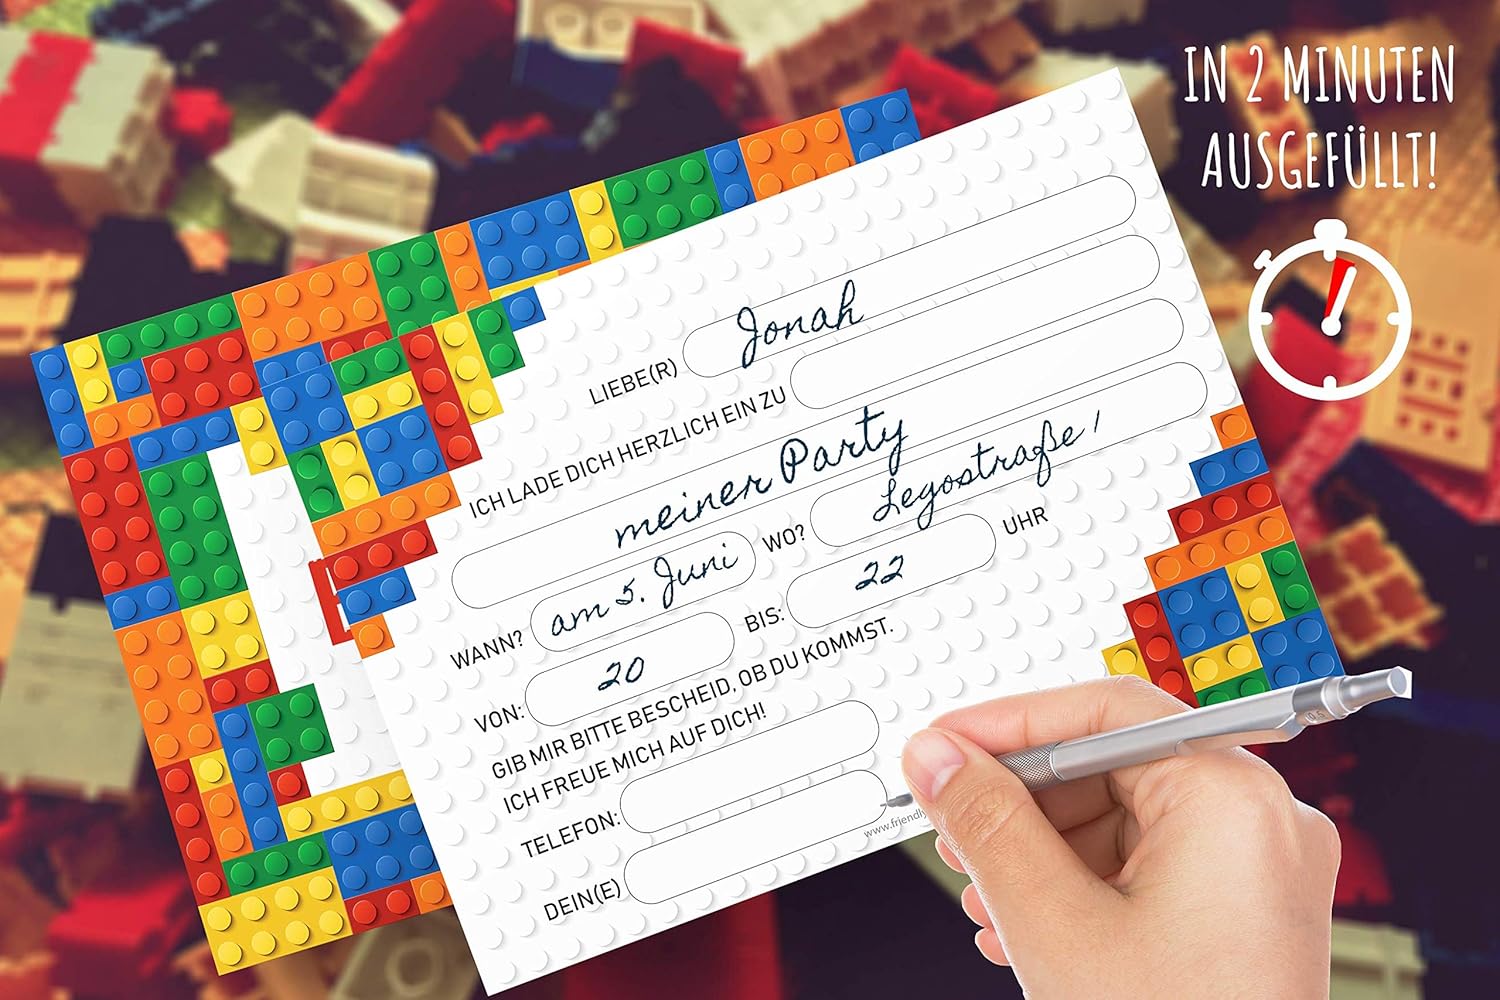 IN 2 MINUTEN
AUSGEFÜLLT!
LIEBE(R) Jonah
ICH LADE DICH HERZLICH EIN ZU
meiner Party
WANN? am 5. Juni WO? Legostraße 1
VON: 20 BIS: 22 UHR
GIB MIR BITTE BESCHEID, OB DU KOMMST.
ICH FREUE MICH AUF DICH!
TELEFON:
DEIN(E)
0,5